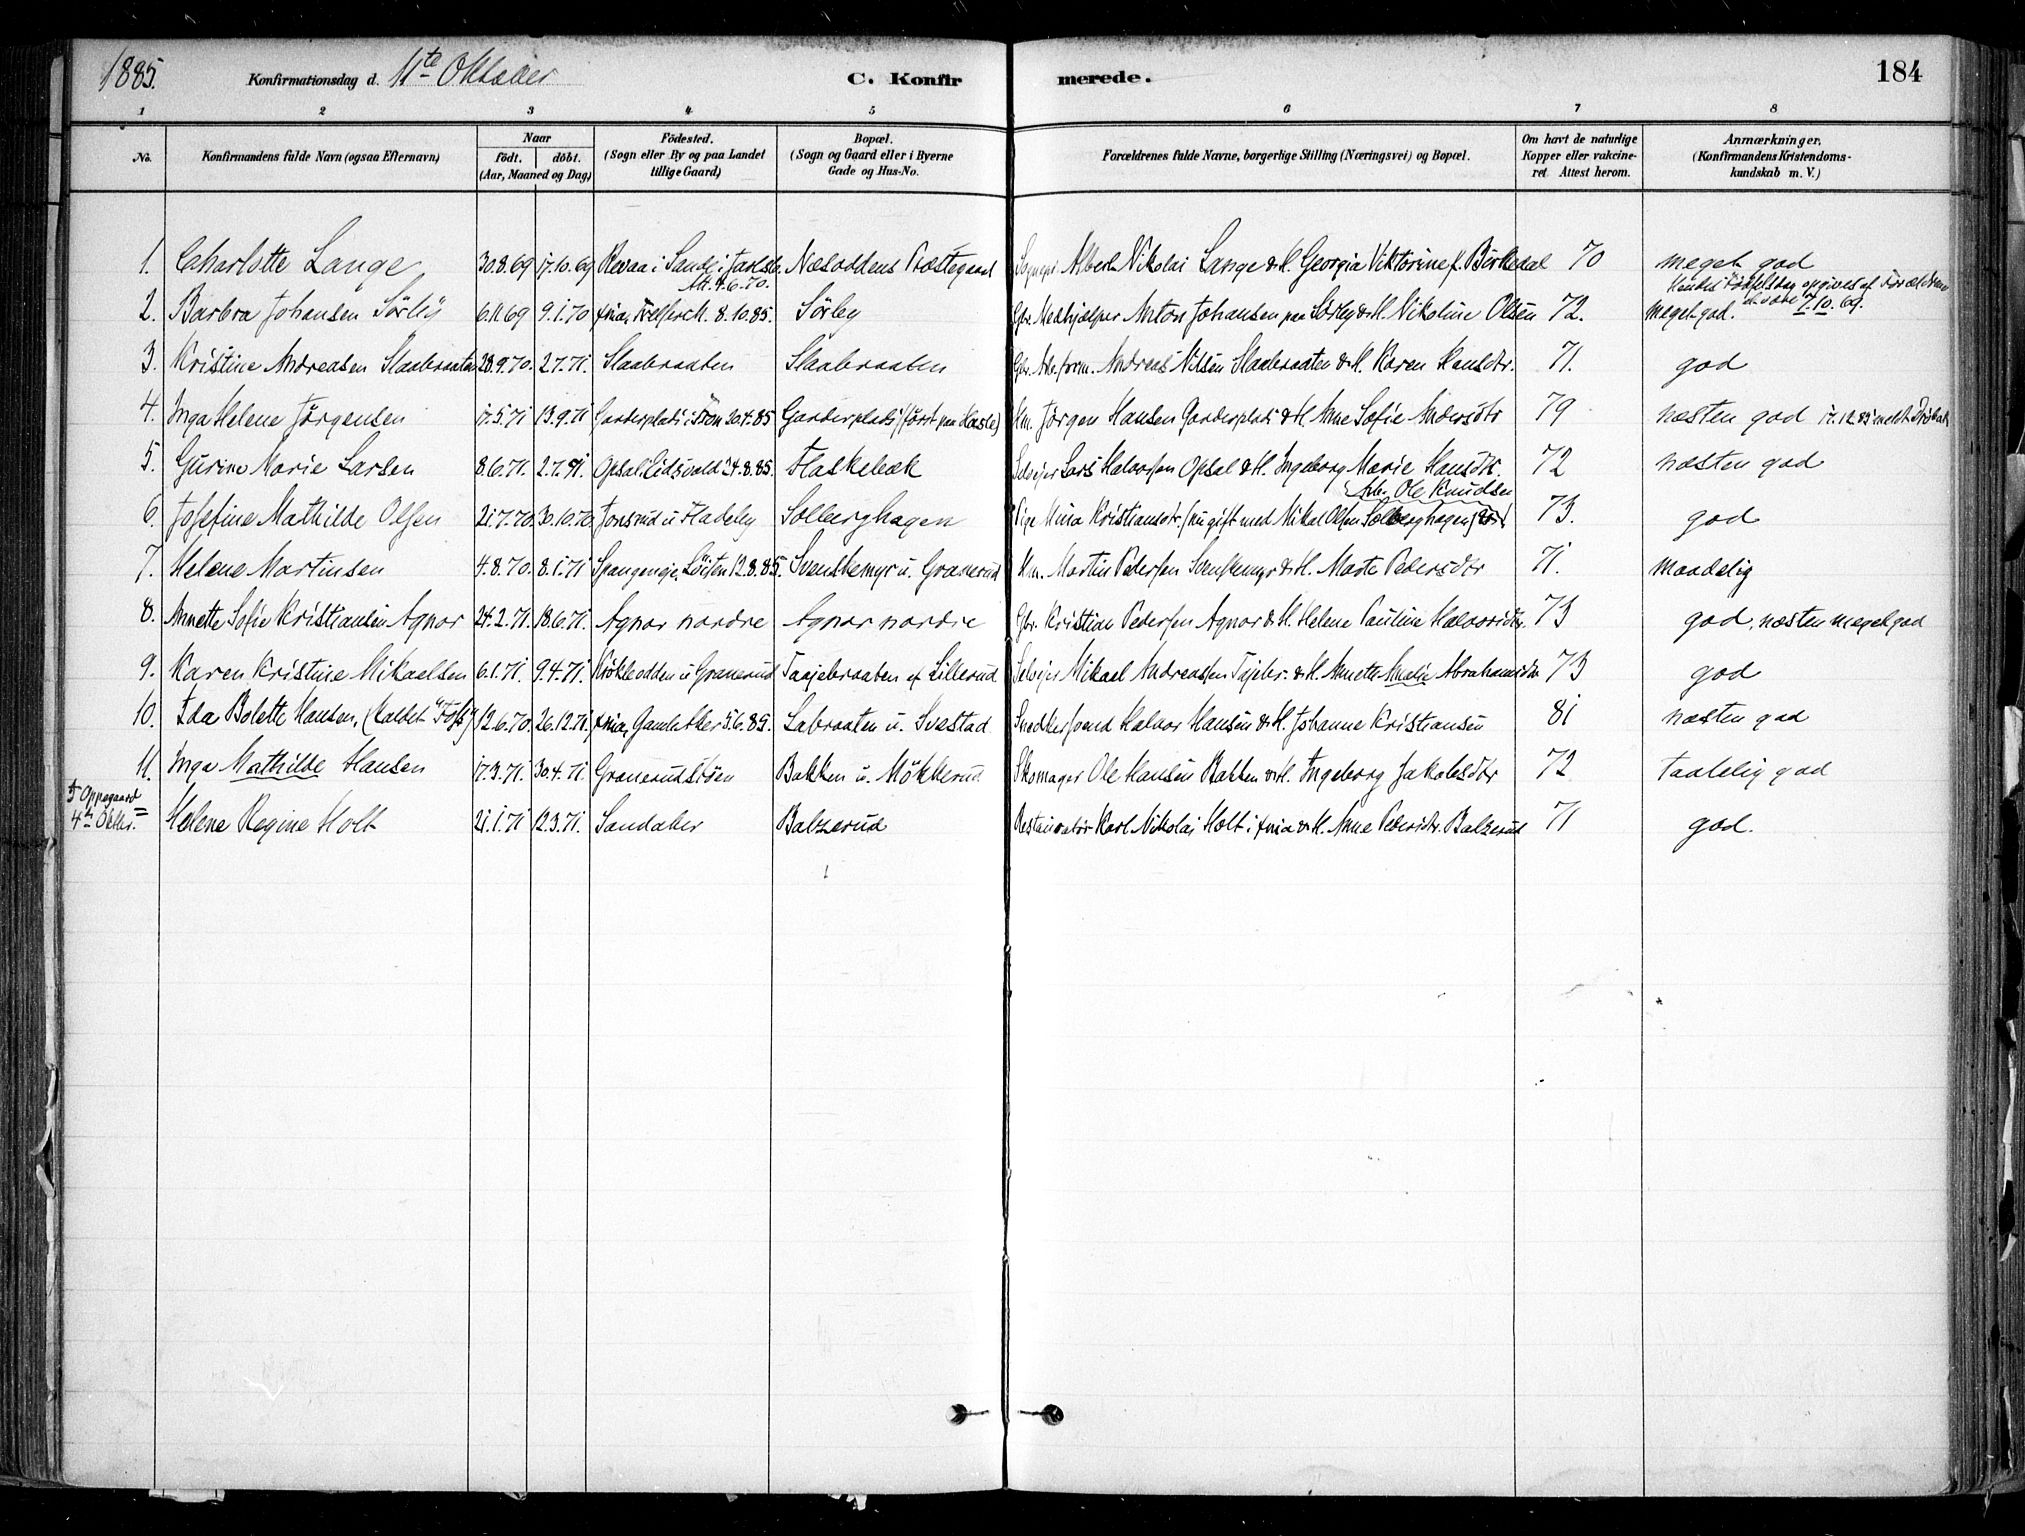 1885.
Konfirmationsdag d. 11te Oktober
C. Konfirmerede.
184
1 2 3 4 5 6 7 8
No.
Konfirmandens fulde Navn (ogsaa Efternavn)
Naar
födt. döbt.
(Aar, Maaned og Dag)
Födested.
(Sogn eller By og paa Landet
tillige Gaard)
Bopæl.
(Sogn og Gaard eller i Byerne
Gade og Hus-No.
Forældrenes fulde Navne, borgerlige Stilling (Næringsvei) og Bopæl.
Om havt de naturlige
Kopper eller vakcine-
ret Attest herom.
Anmærkninger.
(Konfirmandens Kristendoms-
kundskab m. V.)
1. Charlotte Lange 30.8.69 17.10.69 Revaa i Sande i Jarlsb. Att. 4.6.70. Næsoddens Præstegaard Sognepr. Albert Nikolai Lange & H. Georgia Viktorine f. Birkedal 70 meget god
Hendes Fødselsdag opgives af Forældrene at være 7.10.69.
2. Barbra Johansen Sörby 6.11.69 9.1.70 Xnia, Trefoldk. 8.10.85. Sörby Gbr. Medhjælper Anton Johansen paa Sörby & H. Nikoline Olsen 72. meget god.
3. Kristine Andreasen Slaabraaten 28.9.70. 2.7.71. Slaabraaten Slaabraaten Gbr. Arb.form. Andreas Nilsen Slaabraaten & H. Karen Hansdtr. 71. god
4. Inga Helene Jörgensen 17.5.71 13.9.71 Garderplads i Skien 20.4.85 Garderplads (först paa Hasle) Hm. Jörgen Hansen Garderplads & H. Anne Sofie Andersdtr 79 næsten god 17.12.85 meldt Dröbak
5. Gurine Marie Larsen 8.6.71. 2.7.71. Opsal, Eidsvold 24.8.85. Flaskebæk Selvejer Lars Halvorsen Opsal & H. Ingeborg Marie Hansdtr. 72 næsten god
Arb. Ole Knudsen
6. Josefine Mathilde Olsen 21.7.70. 30.10.70 Jonsrud u. Fladeby Solberghagen Pige Mina Kristiansdtr. (nu gift med Mikal Olsen Solberghagen) 73. god
7. Helene Martinsen 4.8.70. 8.1.71 Spangeneje, Löiten 12.8.85. Svenskemyr u. Granerud Hm. Martin Pedersen Svenskemyr & H. Marte Pedersdtr 71. maadelig
8. Annette Sofie Kristiansen Agnor 24.2.71. 18.6.71. Agnor nordre Agnor nordre Gbr. Kristian Pedersen Agnor & H. Helene Pauline Halvorsdtr. 73 god, næsten meget god
9. Karen Kristine Mikaelsen 6.1.71. 9.4.71. Krökleodden u Granerud Taajebraaten af Lillerud Selvejer Mikael Andreassen Tajebr. & H. Annette Amalie Abrahamsdtr 73 god
10. Ida Bolette Hansen, (kaldet "Foss") 12.6.70. 26.12.71. Xnia, Gamle Aker 5.6.85. Labraaten u. Svestad Snedkersvend Halvor Hansen & H. Johanne Kristiansen 81 næsten god
11. Inga Mathilde Hansen 17.3.71. 30.4.71. Granerudstöen Bakken u. Mökkerud Skomager Ole Hansen Bakken & H. Ingeborg Jakobsdtr 72 taalelig god
Oppegaard
4de Oktbr. Helene Regine Holt 21.1.71 12.3.71. Sandaker Balzerud Restauratör Karl Nikolai Holt i Xnia & H. Anne Pedersdtr. Balzerud 71 god.